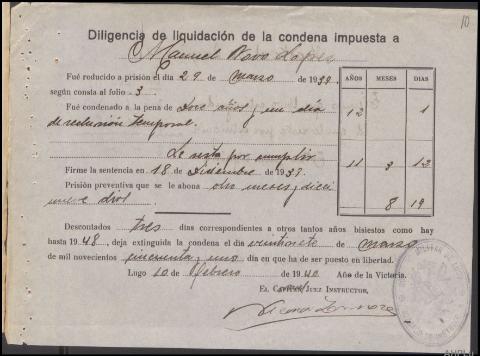 10
Diligencia de liquidación de la condena impuesta a
Manuel Novo Lopez
Fué reducido a prisión el dia 29 de marzo de 1939.
según consta al folio 3
AÑOS MESES DIAS
Fué condenado a la pena de doce años y un dia
12 1
de reclusión temporal.
Le resta por cumplir
11 3 12
Firme la sentencia en 18 de Diciembre de 1939.
Prisión preventiva que se le abona ocho meses y dieci
nueve dias
8 19
Descontados tres dias correspondientes a otros tantos años bisiestos como hay
hasta 1948, deja extinguida la condena el dia veintisiete de marzo
de mil novecientos cincuenta y uno dia en que ha de ser puesto en libertad.
Lugo 10 de Febrero de 1940 Año de la Victoria.
EL JUEZ INSTRUCTOR,